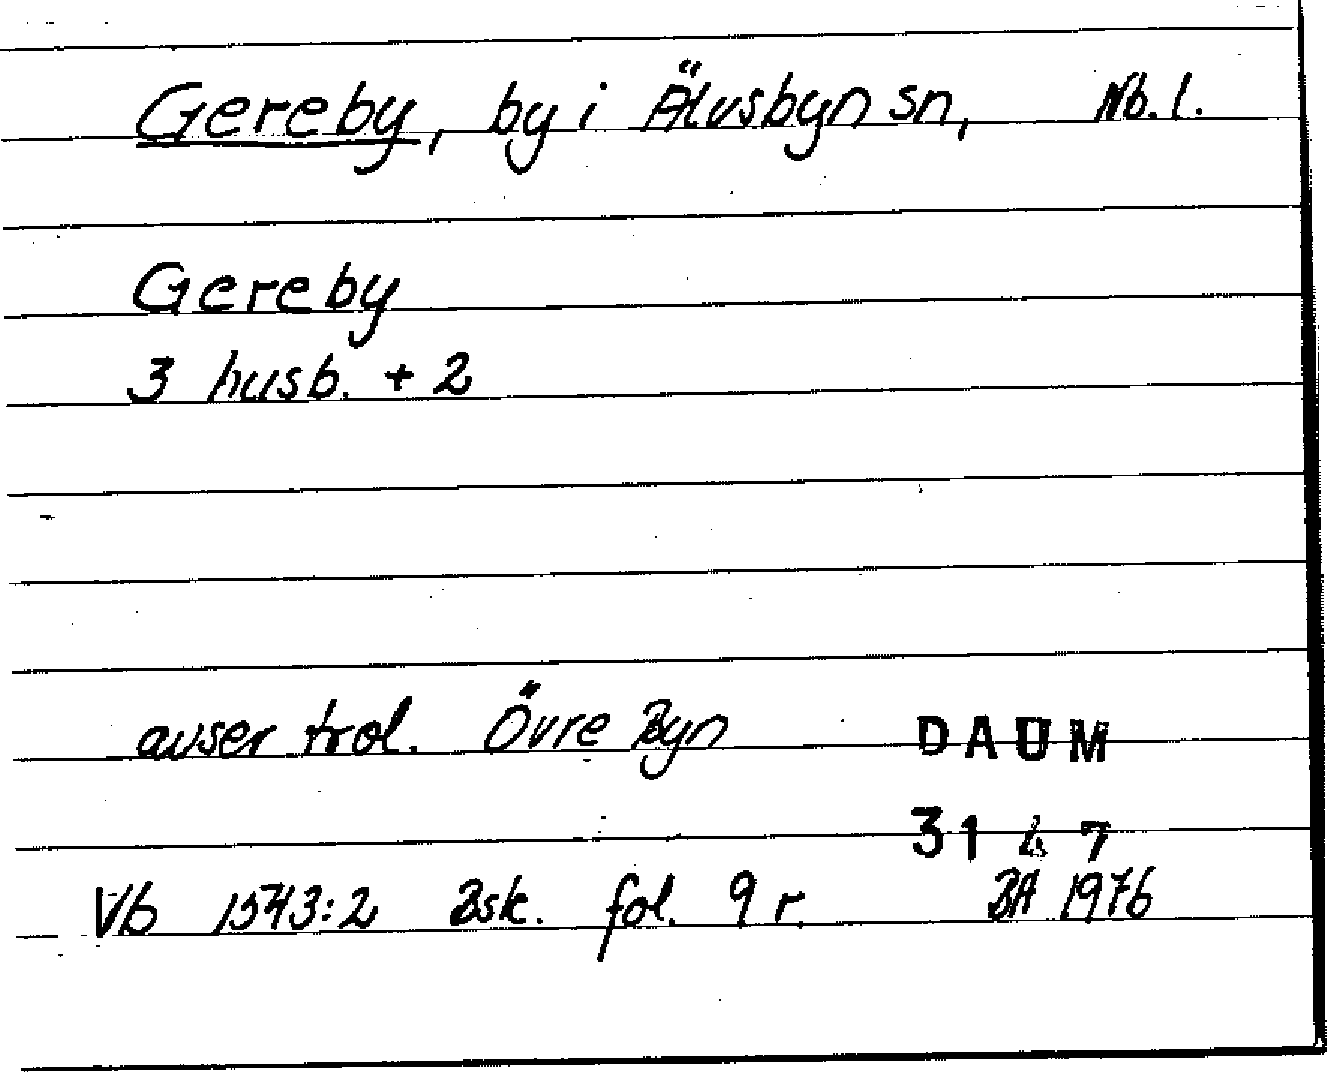 Gereby, by i Älvsbyn sn, Nb. l.
Gereby
3 husb. + 2
avser trol. Övre Byn
DAUM
3147
Vb 1543:2 Bsk. fol. 9 r. BA 1976